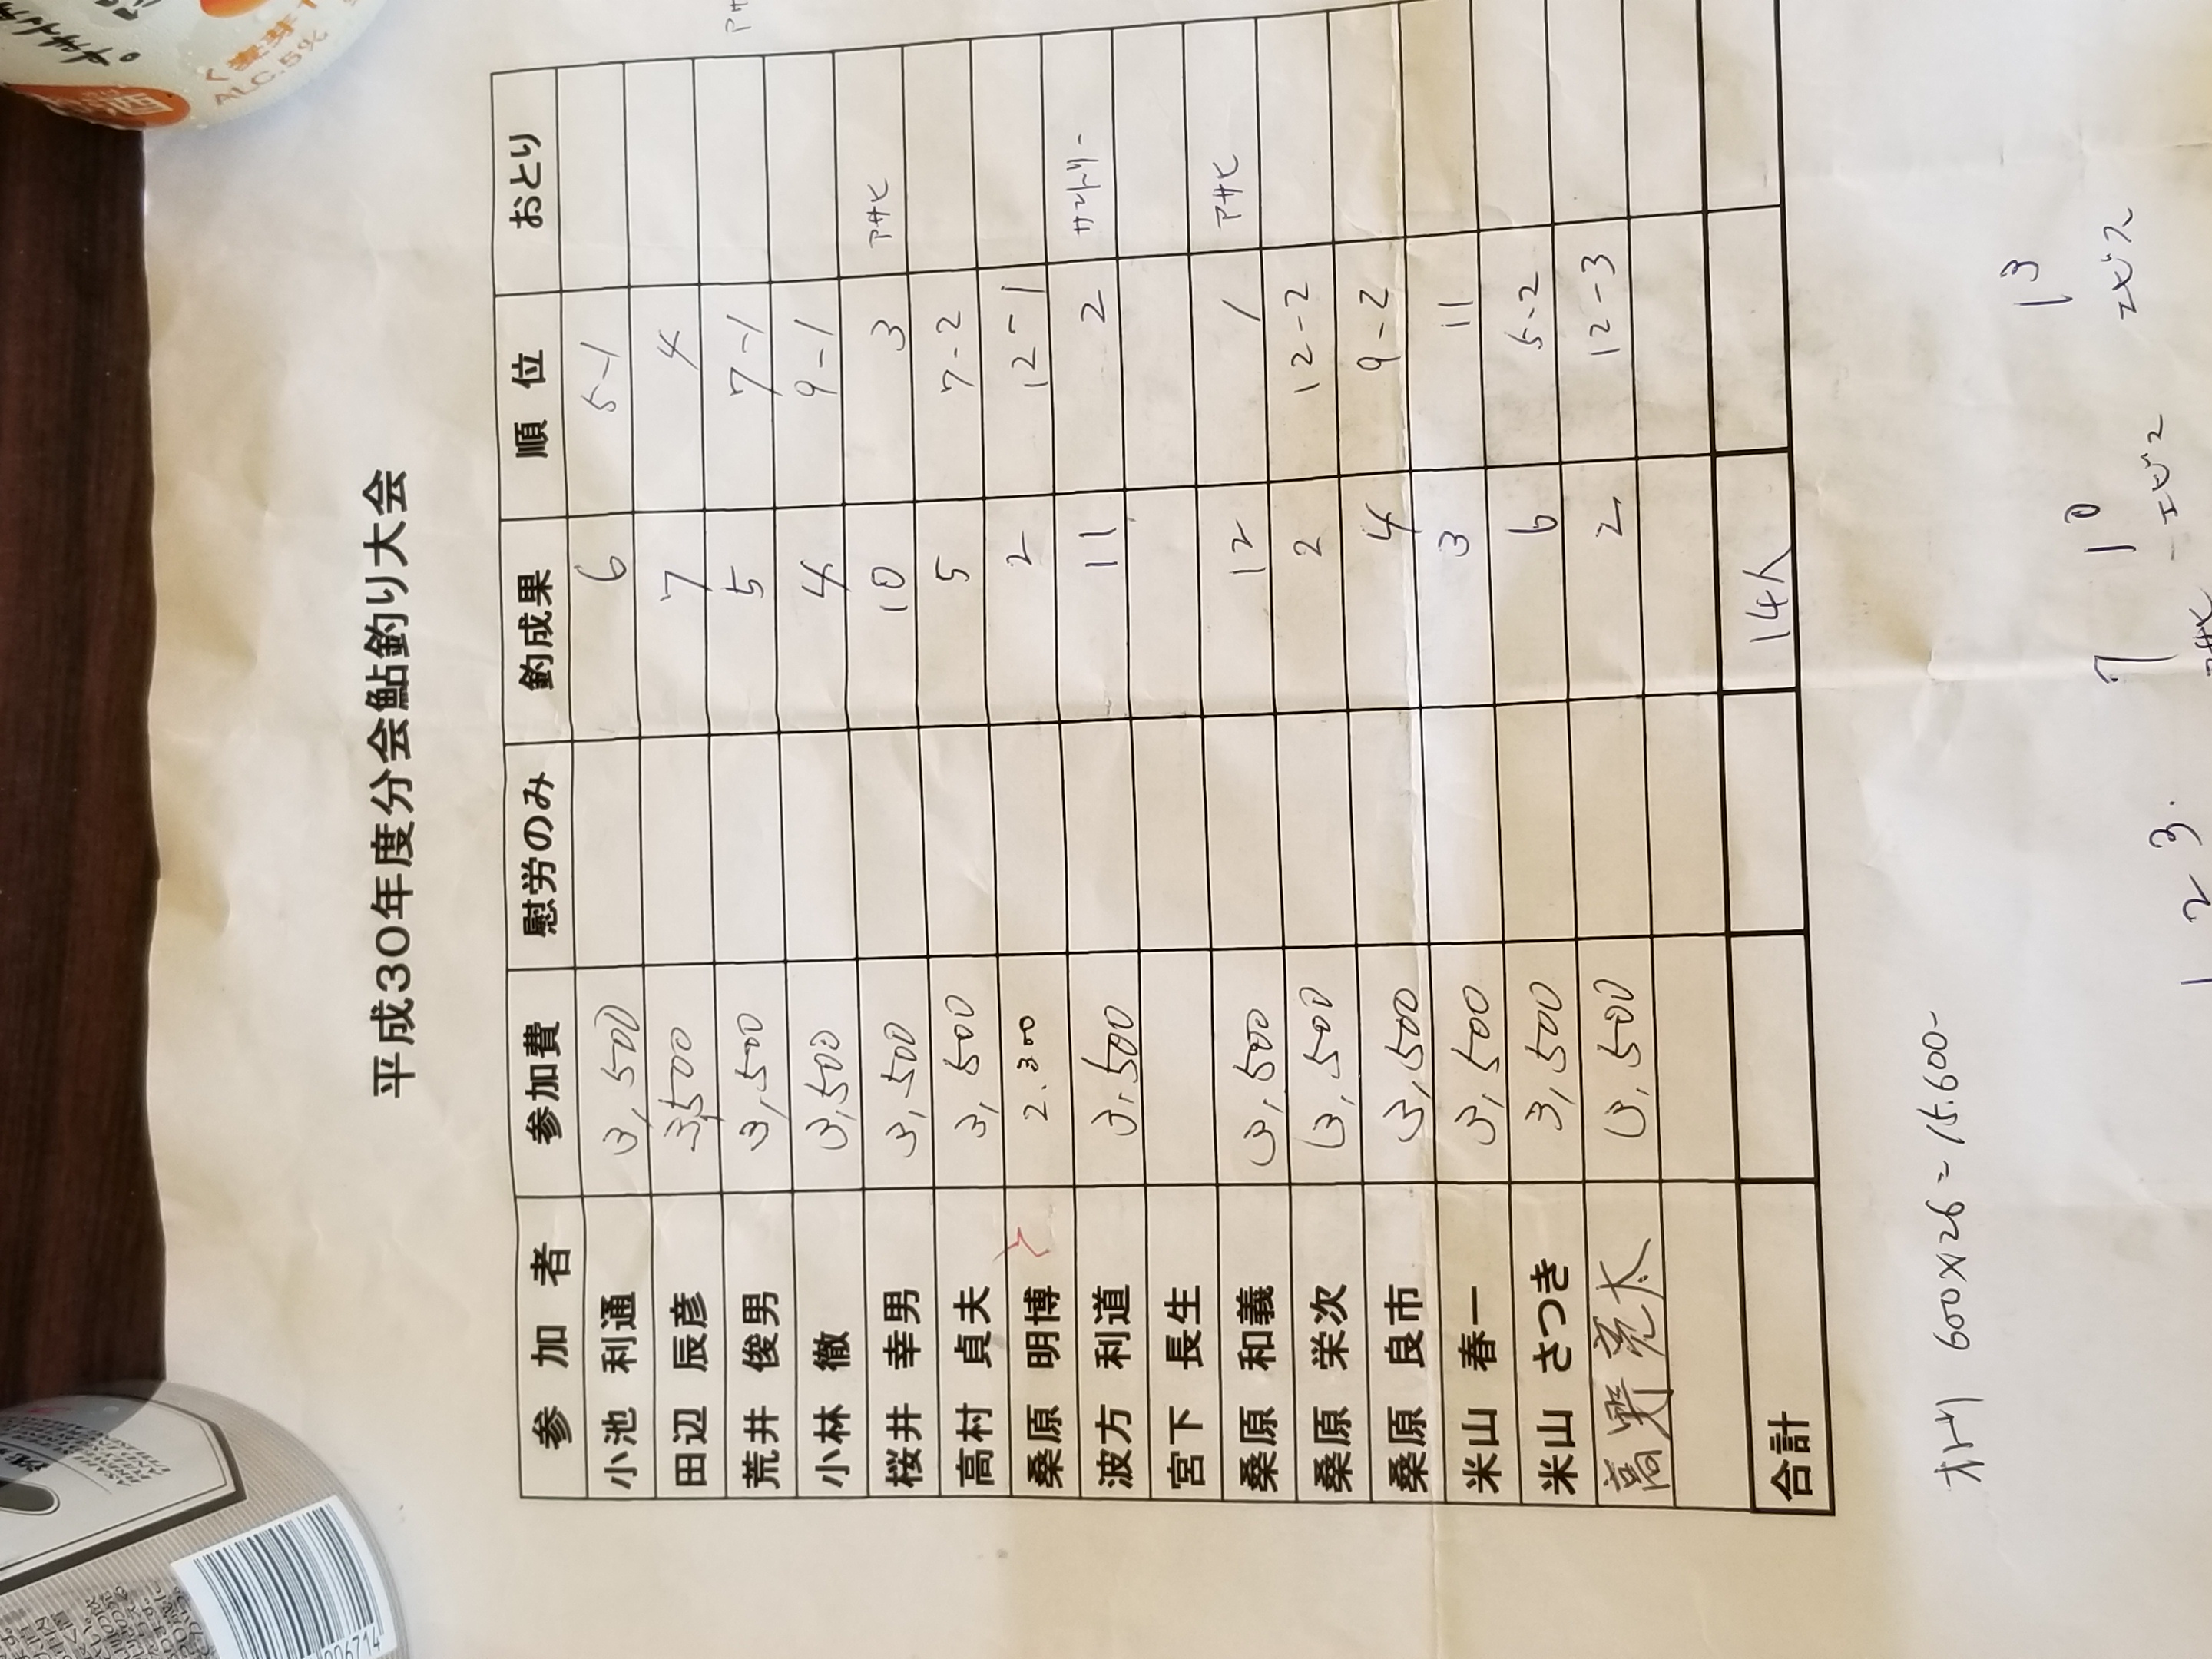 平成30年度分会鮎釣り大会
参加者 参加費 慰労のみ 釣成果 順位 おとり
小池 利通 3,500 6 5-1
田辺 辰彦 3,500 7 4
荒井 俊男 3,500 5 7-1
小林 徹 3,500 4 9-1
桜井 幸男 3,500 10 3 アサヒ
高村 貞夫 3,500 5 7-2
桑原 明博 2.300 2 12-1
波方 利道 3,500 11 2 サントリー
宮下 長生
桑原 和義 3,500 12 1 アサヒ
桑原 栄次 3,500 2 12-2
桑原 良市 3,500 4 9-2
米山 春一 3,500 3 11
米山 さつき 3,500 6 5-2
高野 亮太 3,500 2 12-3
合計 14人
オトリ 600×26=15.600-
13
エビス
10
エビス
7
アサヒ
1 2 3.
ALC.5%
006714